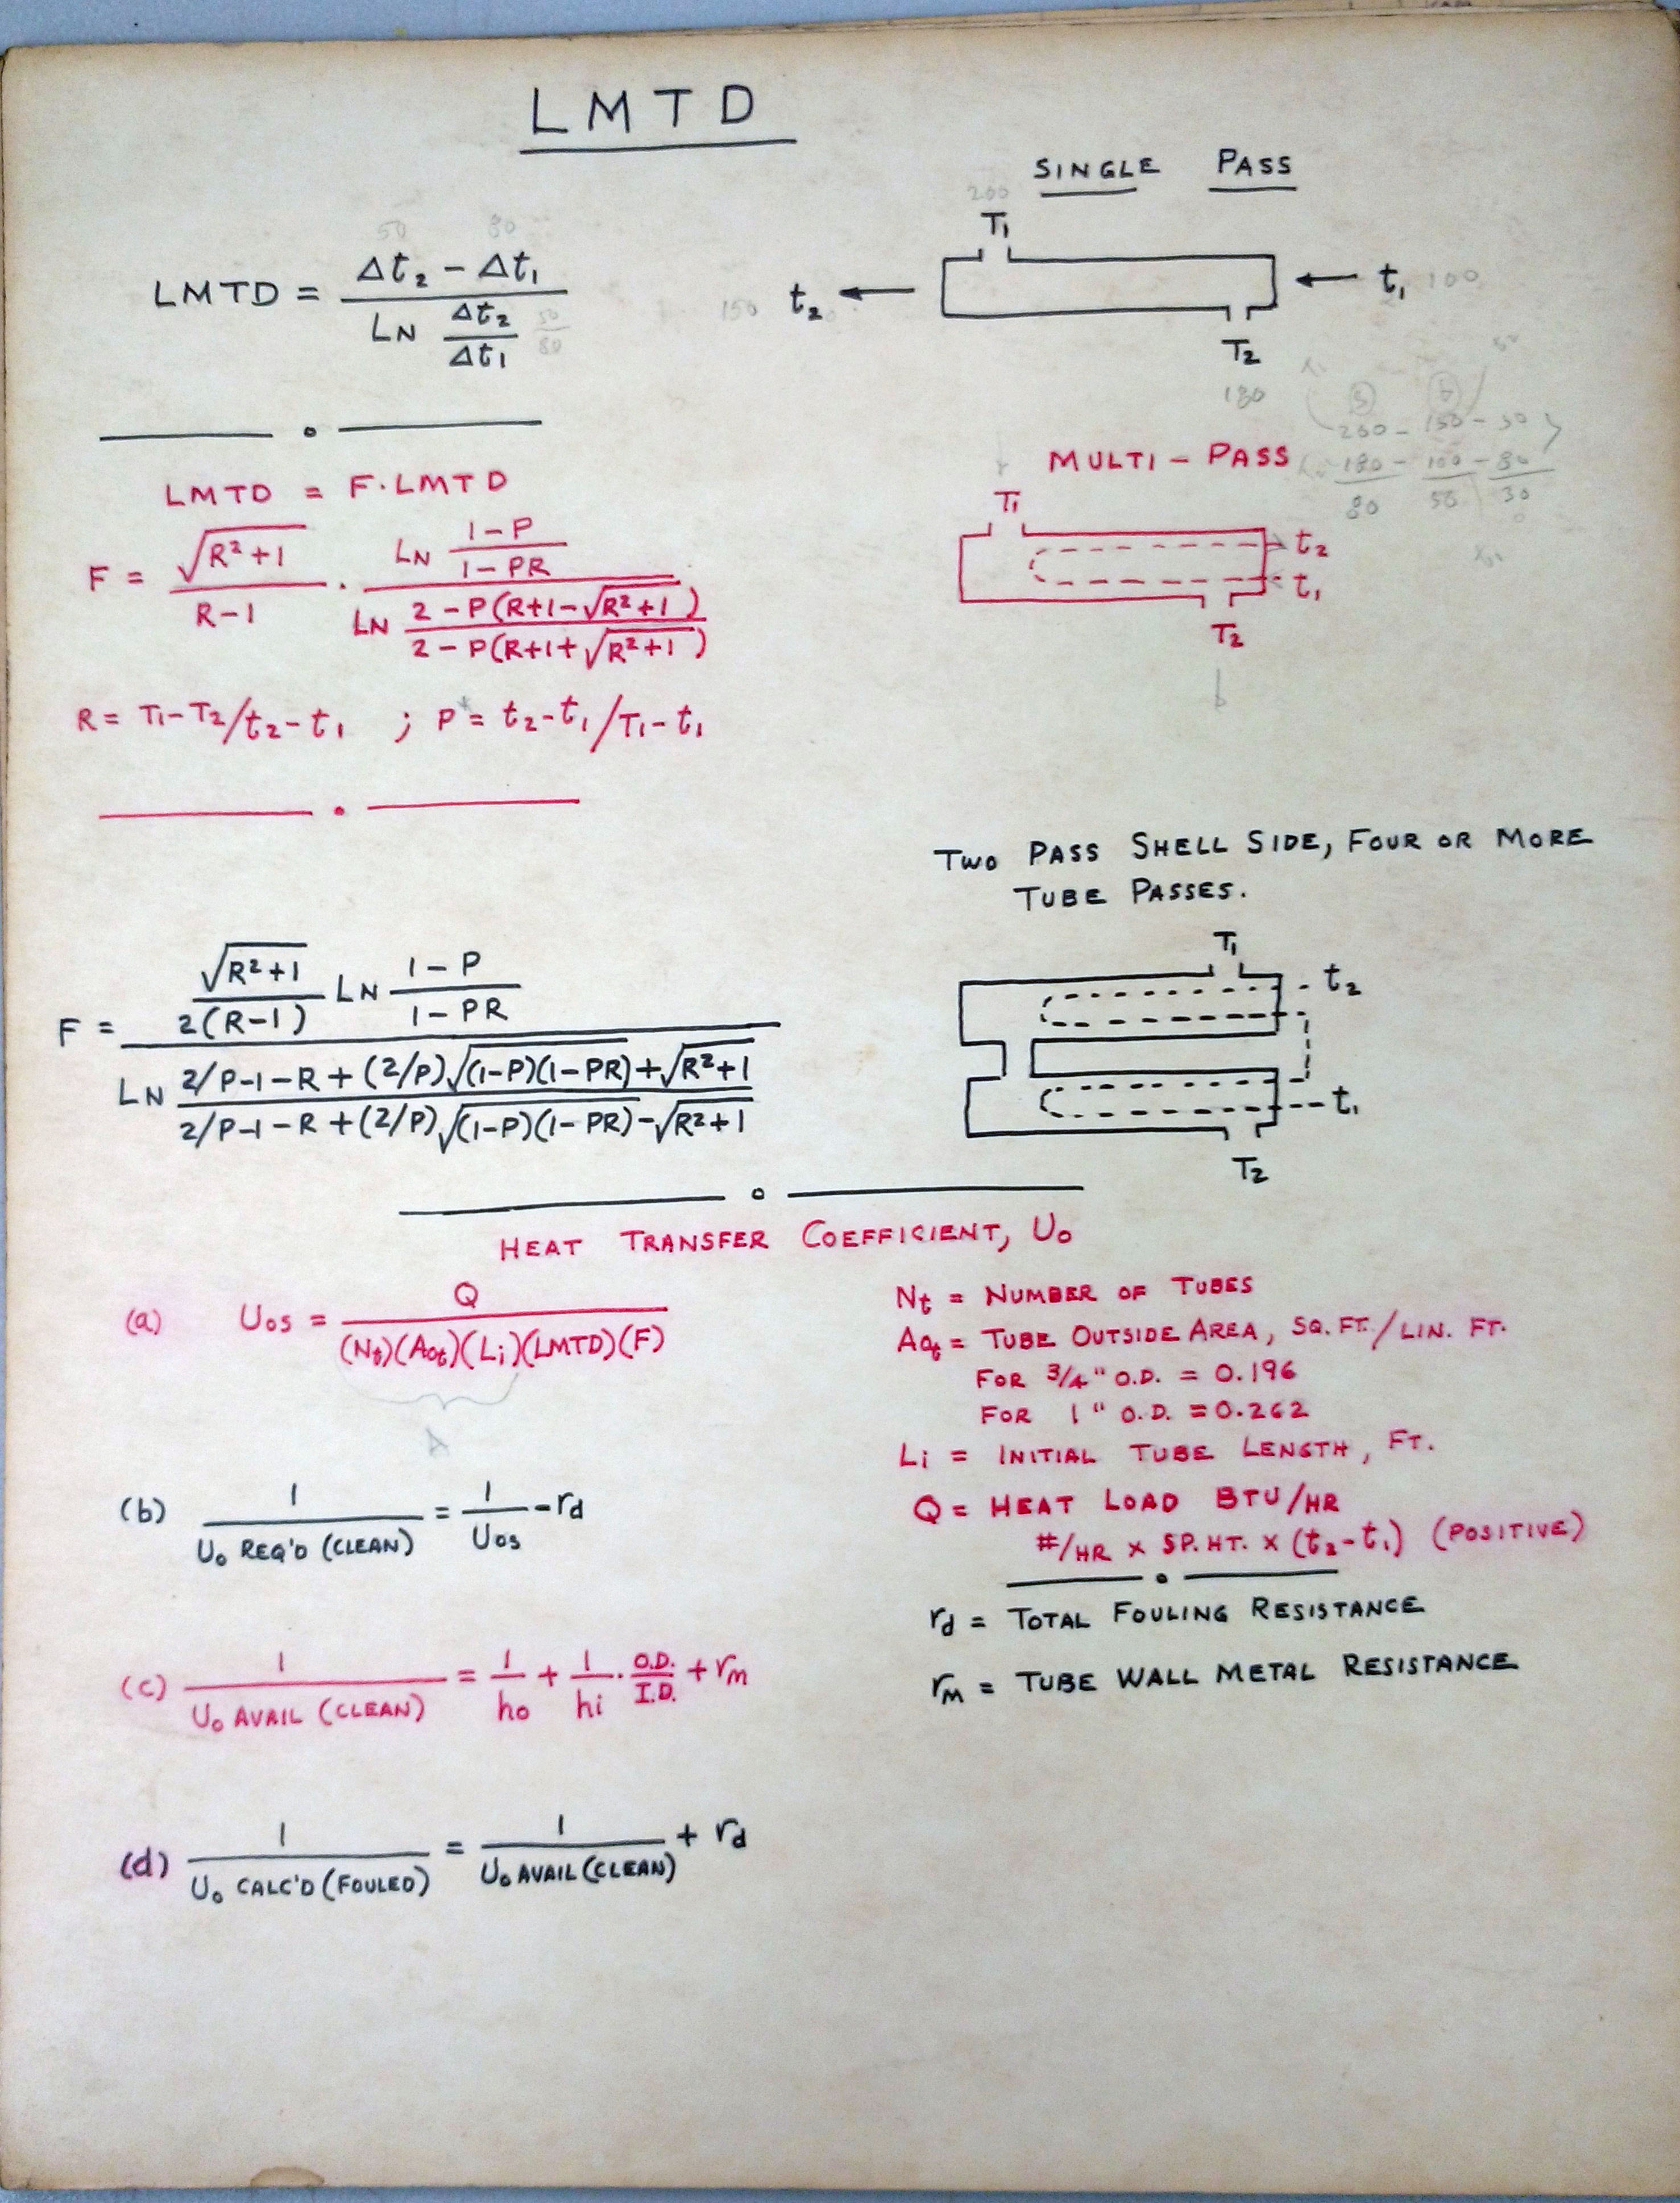 LMTD
SINGLE PASS
200
T₁
50 80
LMTD = (Δt₂ - Δt₁) / (LN Δt₂/Δt₁)
50/80
150 t₂ ← ← t₁ 100
T₂
180
200 - 150 - 50
180 - 100 - 80
80 50 30
LMTD = F·LMTD
MULTI-PASS
T₁
t₂
t₁
T₂
F = √(R²+1) / (R-1) · (LN (1-P)/(1-PR)) / (LN (2-P(R+1-√(R²+1)))/(2-P(R+1+√(R²+1))))
R = T₁-T₂/t₂-t₁ ; P = t₂-t₁/T₁-t₁
TWO PASS SHELL SIDE, FOUR OR MORE
TUBE PASSES.
T₁
t₂
t₁
T₂
F = (√(R²+1) / 2(R-1) LN (1-P)/(1-PR)) / (LN (2/P-1-R+(2/P)√((1-P)(1-PR))+√(R²+1)) / (2/P-1-R+(2/P)√((1-P)(1-PR))-√(R²+1)))
HEAT TRANSFER COEFFICIENT, U₀
(a) Uos = Q / (Nt)(Aot)(Li)(LMTD)(F)
A
(b) 1 / U₀ REQ'D (CLEAN) = 1/Uos - rd
(c) 1 / U₀ AVAIL (CLEAN) = 1/ho + 1/hi · O.D./I.D. + rm
(d) 1 / U₀ CALC'D (FOULED) = 1 / U₀ AVAIL (CLEAN) + rd
Nt = NUMBER OF TUBES
Aot = TUBE OUTSIDE AREA, SQ. FT./LIN. FT.
FOR 3/4" O.D. = 0.196
FOR 1" O.D. = 0.262
Li = INITIAL TUBE LENGTH, FT.
Q = HEAT LOAD BTU/HR
#/HR × SP.HT. × (t₂-t₁) (POSITIVE)
rd = TOTAL FOULING RESISTANCE
rm = TUBE WALL METAL RESISTANCE